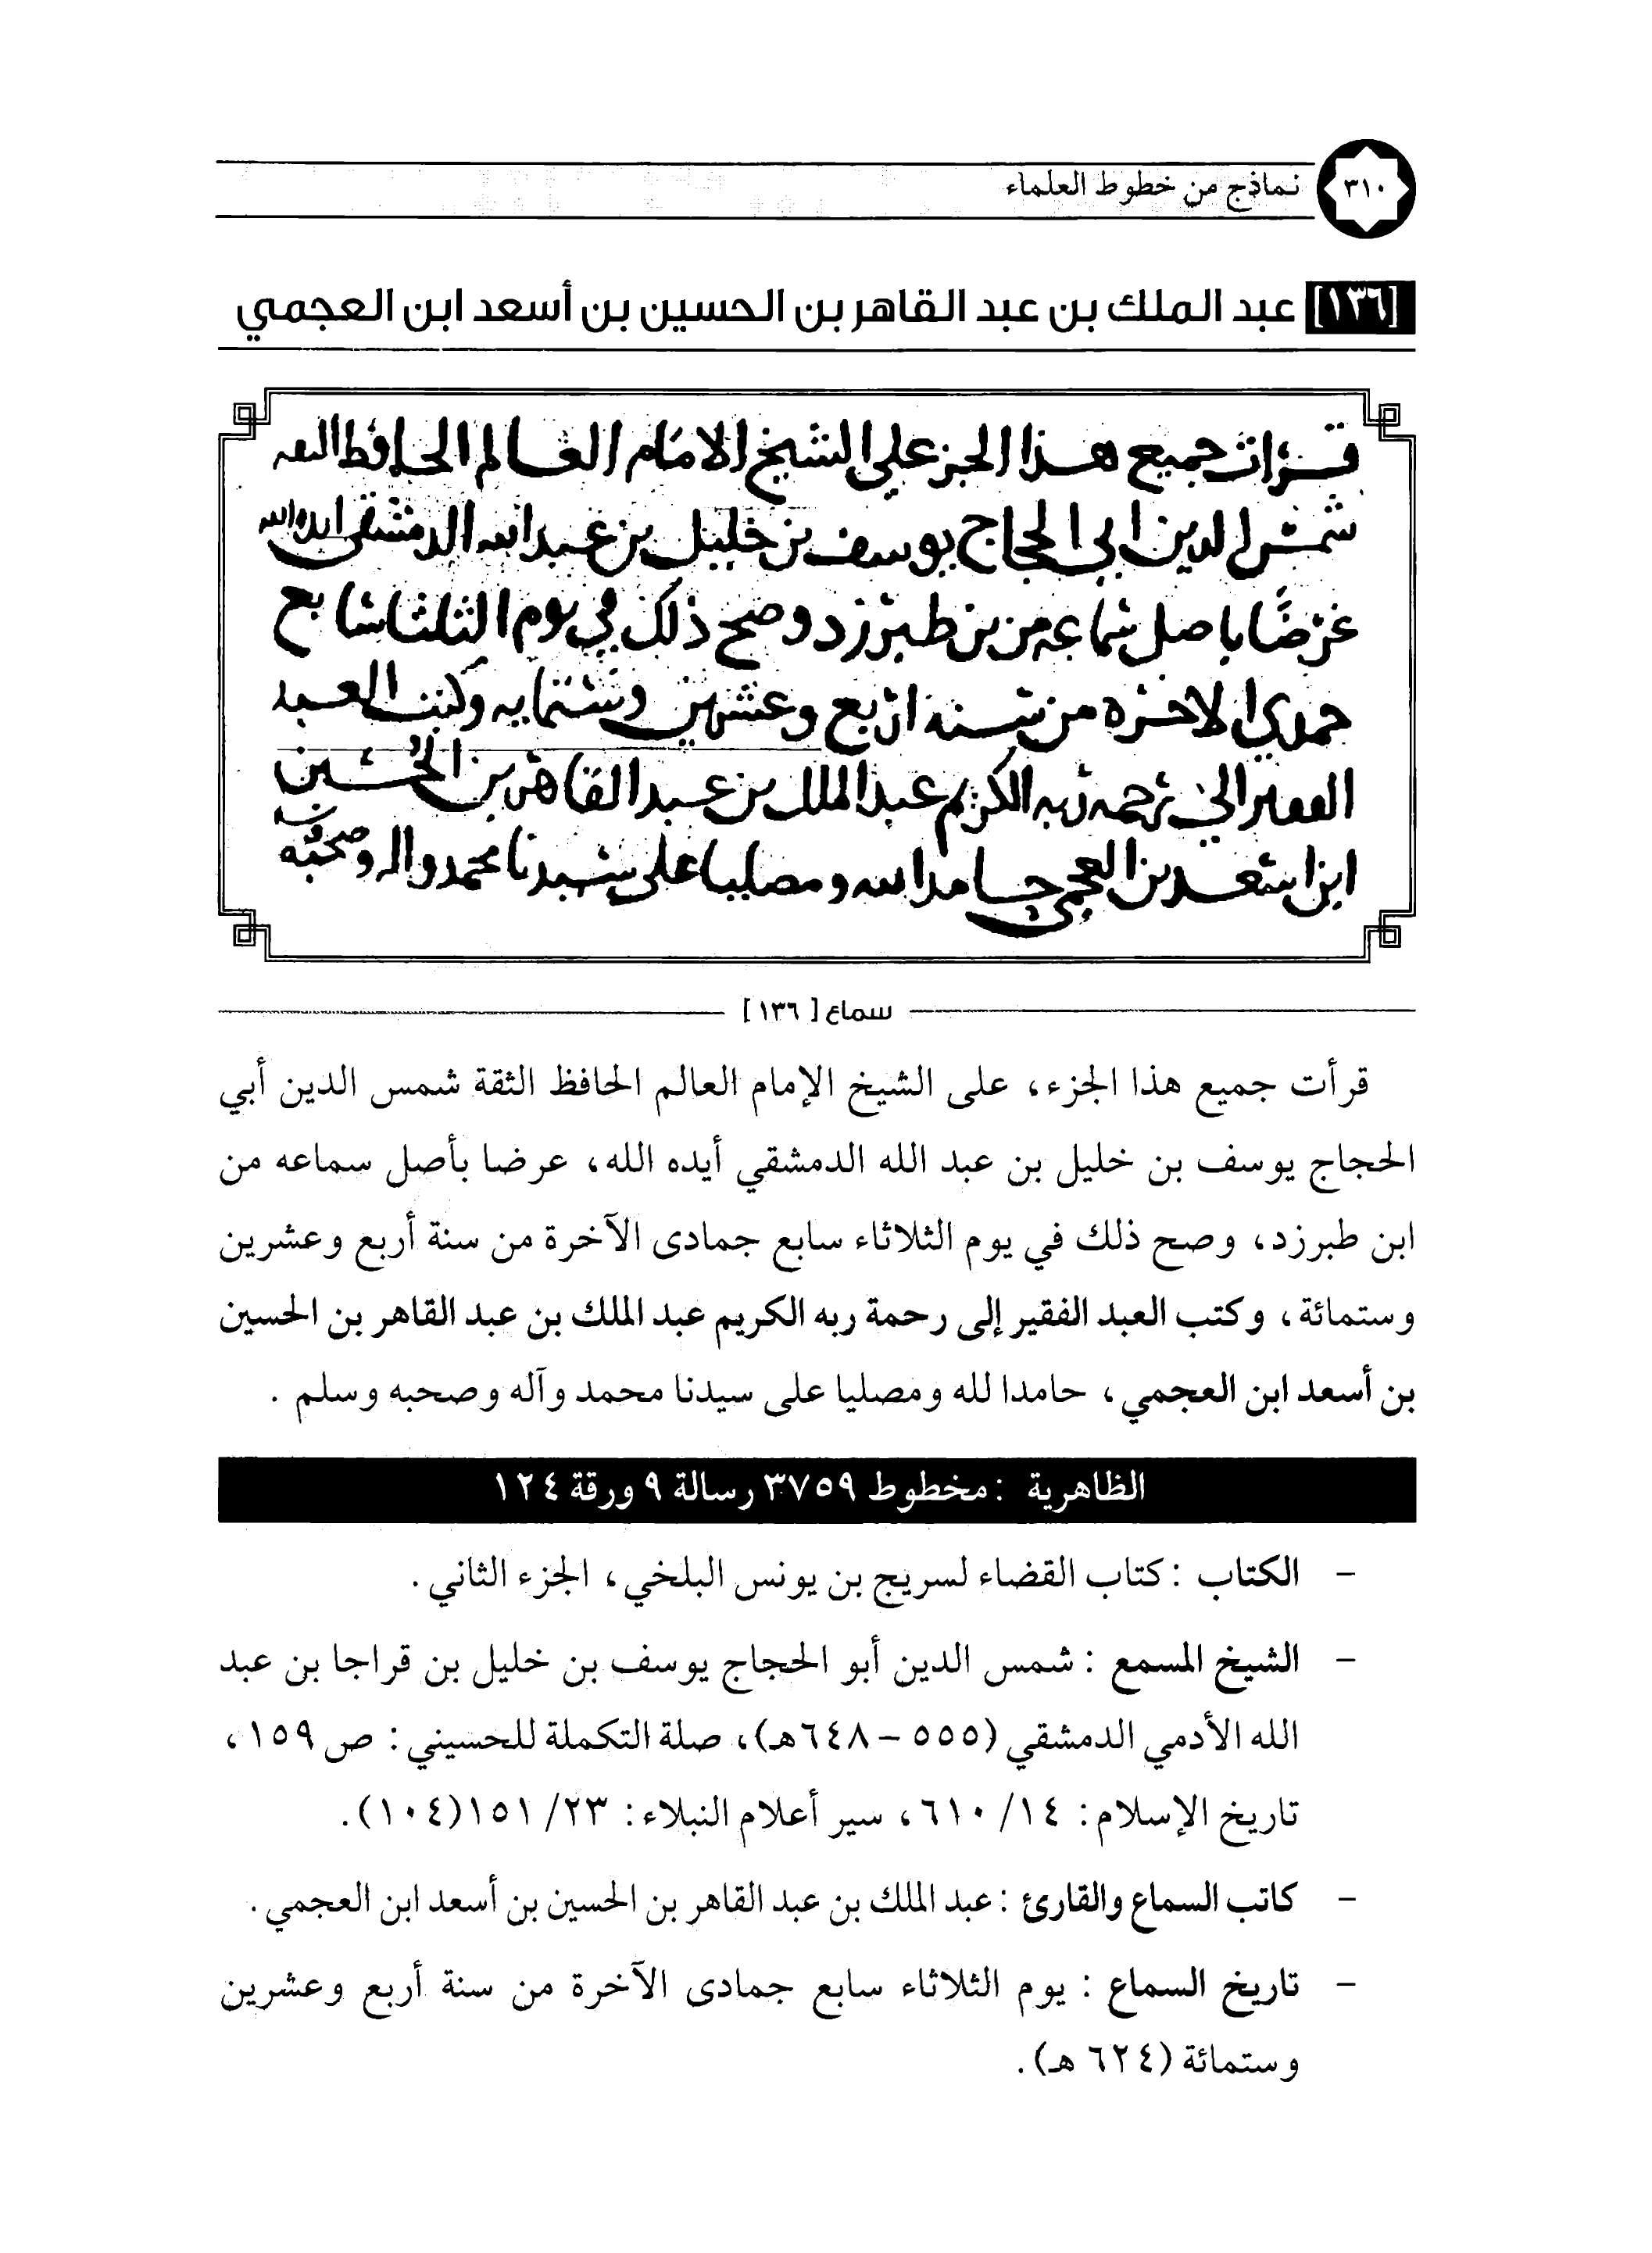 ٣١٠
نماذج من خطوط العلماء
[١٣٦] عبد الملك بن عبد القاهر بن الحسين بن أسعد ابن العجمي
قرات جميع هذا الجز على الشيخ الامام العالم الحافظ الثقه
شمس الدين ابي الحجاج يوسف بن خليل بن عبد الله الدمشقي ايده الله
عرضا باصل سماعه من بن طبرزد وصح ذلك في يوم الثلثا سابع
جمدي الاخره من سنه اربع وعشرين وستمايه وكتب العبد
الفقير الى رحمه ربه الكريم عبد الملك بن عبد القاهر بن الحسين
ابن اسعد بن العجمي حامدا لله ومصليا على سيدنا محمد واله وصحبه
سماع [١٣٦]
قرأت جميع هذا الجزء، على الشيخ الإمام العالم الحافظ الثقة شمس الدين أبي
الحجاج يوسف بن خليل بن عبد الله الدمشقي أيده الله، عرضا بأصل سماعه من
ابن طبرزد، وصح ذلك في يوم الثلاثاء سابع جمادى الآخرة من سنة أربع وعشرين
وستمائة، وكتب العبد الفقير إلى رحمة ربه الكريم عبد الملك بن عبد القاهر بن الحسين
بن أسعد ابن العجمي، حامدا لله ومصليا على سيدنا محمد وآله وصحبه وسلم.
الظاهرية : مخطوط ٣٧٥٩ رسالة ٩ ورقة ١٢٤
– الكتاب : كتاب القضاء لسريج بن يونس البلخي، الجزء الثاني.
– الشيخ المسمع : شمس الدين أبو الحجاج يوسف بن خليل بن قراجا بن عبد
الله الأدمي الدمشقي (٥٥٥ – ٦٤٨هـ)، صلة التكملة للحسيني: ص ١٥٩،
تاريخ الإسلام: ١٤/ ٦١٠، سير أعلام النبلاء: ٢٣/ ١٥١(١٠٤).
– كاتب السماع والقارئ : عبد الملك بن عبد القاهر بن الحسين بن أسعد ابن العجمي.
– تاريخ السماع : يوم الثلاثاء سابع جمادى الآخرة من سنة أربع وعشرين
وستمائة (٦٢٤ هـ).